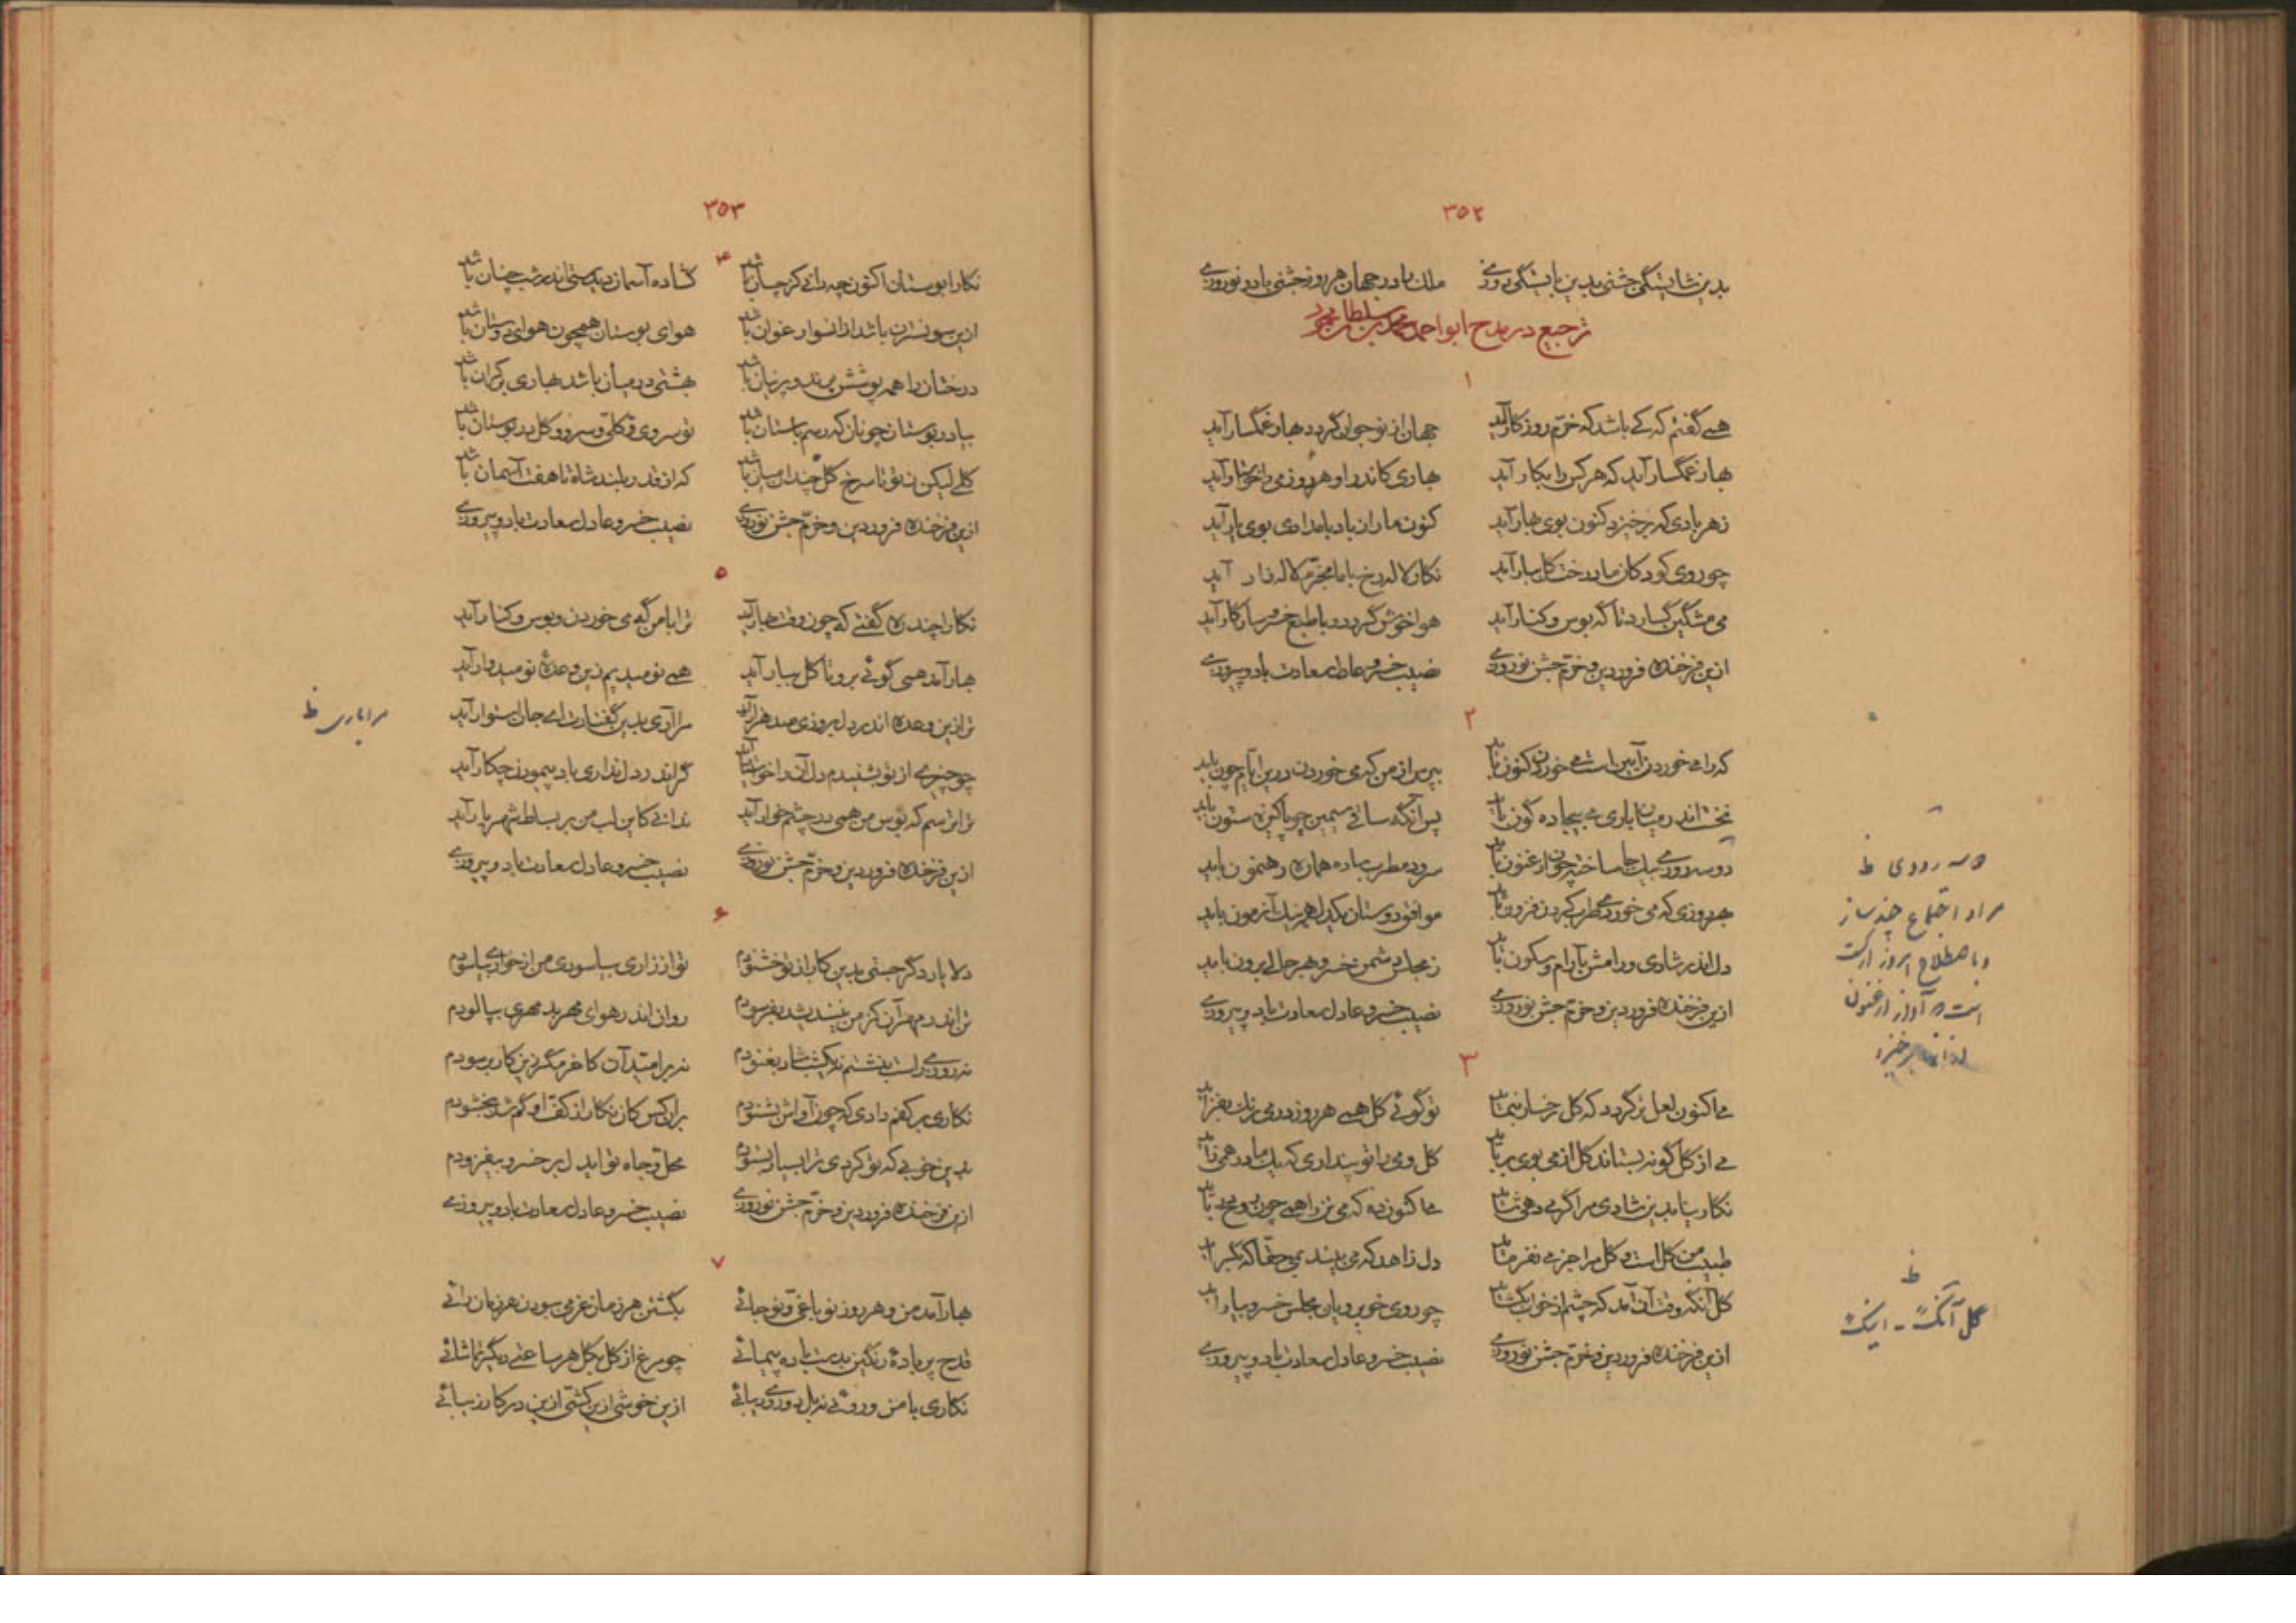 ۳۵۲
بدین شایستگی جشنی بدین بایستگی روزی ملک را در جهان هر روز جشنی باد و نوروزی
ترجیع در مدح ابواحمد محمد بن سلطان محمود
۱
همی گفتم که کی باشد که خرم روزگار آید جهان از نو جوان گردد بهار غمگسار آید
بهار غمگسار آید که هر کس را بکار آید بهاری کاندر او هر روز می را خواستار آید
ز هر بادی که برخیزد کنون بوی بهار آید کنون ما را ز باد بامدادی بوی یار آید
چو روی کودکان ما درخت گل ببار آید نگار لاله رخ با ما بخرم لاله زار آید
می مشگین گسارد تا گه بوس و کنار آید هوا خوش گردد و با طبع خسرو سازگار آید
ازین فرخنده فروردین و خرم جشن نوروزی نصیب خسرو عادل سعادت باد و پیروزی
۲
که را می خوردن آیین است می خوردن کنون باید بپرس از من که می خوردن درین ایام چون باید
نخست اندر میان باری می بیجاده گون باید پس آنگه ساقی سیمین چو پاکیزه ستون باید
دو سه رودی بیک جا ساخته چون ارغنون باید سرود مطرب باده همان رهنمون باید
بهر روزی که می خوردی طرب کردن فزون باید موافق دوستان یکدل همه نیک آزمون باید
دل اندر شادی و رامش بآرام و سکون باید ز مجلس دشمن خسرو بهر حالی برون باید
ازین فرخنده فروردین و خرم جشن نوروزی نصیب خسرو عادل سعادت باد و پیروزی
۳
می اکنون لعل تر گردد که گل رخسار بنماید تو گوئی گل همی هر روز در می بفزاید
می از گل گونه بستاند گل از می بوی برباید گل و می را تو پنداری که یک مادر همی زاید
نگارینا بدین شادی مرا گر می دهی شاید می اکنون ده که می نزد همی چون باید
طبیب من گل است و گل مرا جز می نفرماید دل زاهد که می بیند بمی حقا که بگراید
گل آنگه وقت آن آمد که چشم از خواب بگشاید چو روی خوبرویان مجلس خسرو بیاراید
ازین فرخنده فروردین و خرم جشن نوروزی نصیب خسرو عادل سعادت باد و پیروزی
دو سه رودی ظ
مراد اجتماع چند ساز
و باصطلاح امروز ارکست
است که آواز ارغنون
از آنها برخیزد
ظ
گل آنک - اینک
۳۵۳
۴
نگارا بوستان اکنون چه دانی کز چسان باشد گشاده آسمان دیدستی اندر شب چنان باشد
ازین سو نسترن باشد از انسو ارغوان باشد هوای بوستان همچون هوای دوستان باشد
درختان را همه پوشش پرند و پرنیان باشد بهشتی در میان باشد بهاری بر کران باشد
بیا در بوستان چونان که رسم باستان باشد تو سروی و گلی و سرو و گل در بوستان باشد
گلی لیکن ز تو تا سرخ گل چندان میان باشد که از قدر بلند شاه تا هفت آسمان باشد
ازین فرخنده فروردین و خرم جشن نوروزی نصیب خسرو عادل سعادت باد و پیروزی
۵
نگارا چند ره گفتی که چون وقت بهار آید ترا با من گه می خوردن و بوس و کنار آید
بهار آمد همی گوئی برو تا گل ببار آید همی نومیدیم زین وعدهٔ نومیدوار آید
ترا زین وعده اندر دل بروزی صد هزار آید مرا آری بدین گفتارت ای جان استوار آید
چو چیزی از تو بشنیدم دل آن را خواستار آید گر اندر دل نداری باد پیمودن چکار آید
ترا ترسم که بوس من همی در چشم خوار آید ندانی کاین لب من بر بساط شهریار آید
ازین فرخنده فروردین و خرم جشن نوروزی نصیب خسرو عادل سعادت باد و پیروزی
مرا باری ظ
۶
دلا باری دگر جستی بدین کار از تو خشنودم تو از زاری بیاسودی من از خواری بیاسودم
تن اندر مهر آن کز من نیندیشد بفرسودم روان اندر هوای مهر بد مهری بپالودم
نه روزی برلب بنشستم نه یکشب شاد بغنودم نه بر امید آن کاخر مگر زین کار بر سودم
نگاری بر کفم دادی که چون آواش بشنودم بران کس کان نگار از کف او گم شد ببخشودم
بدین خوبی که تو کردی ترا بسیار بستودم محل و جاه تو ای دل بر خسرو بیفزودم
ازین فرخنده فروردین و خرم جشن نوروزی نصیب خسرو عادل سعادت باد و پیروزی
۷
بهار آمد من و هر روز نو باغی و نو جائی بگشتن هر زمان عزمی ببودن هر زمان رائی
قدح پر بادهٔ رنگین بدست باده پیمائی چو مرغ از گل بگل هر ساعتی دیگر تماشائی
نگاری با من و روئی نه دیبائی ازین خوشی ازین کشی ازین در کار زیبائی